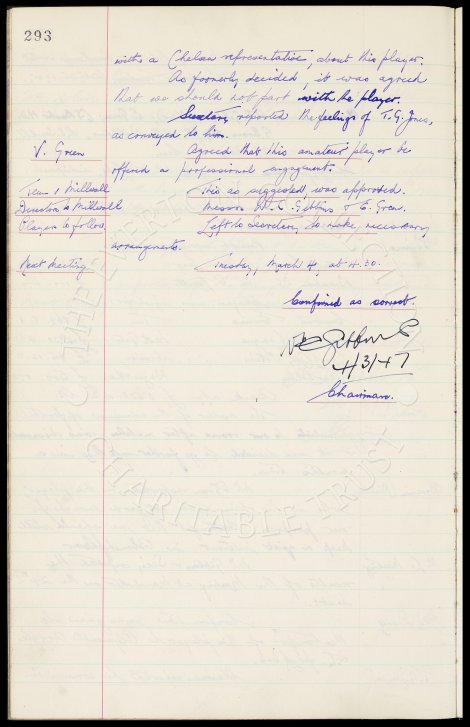 293
with a Chelsea representative, about this player.
As formerly decided, it was agreed
that we should not part with the player.
Secretary reported the feelings of T. G. Jones,
as conveyed to him.
V. Green Agreed that this amateur player be
offered a professional engagement.
Team v Millwall This as suggested, was approved.
Directors to Millwall Messrs W. C. Gibbins & E. Green.
Players to follow. Left to Secretary to make necessary
arrangements.
Next Meeting Tuesday, March 4, at 4.30.
Confirmed as correct.
W C Gibbins
4/3/47
Chairman.
THE EVERTON
CHARITABLE TRUST